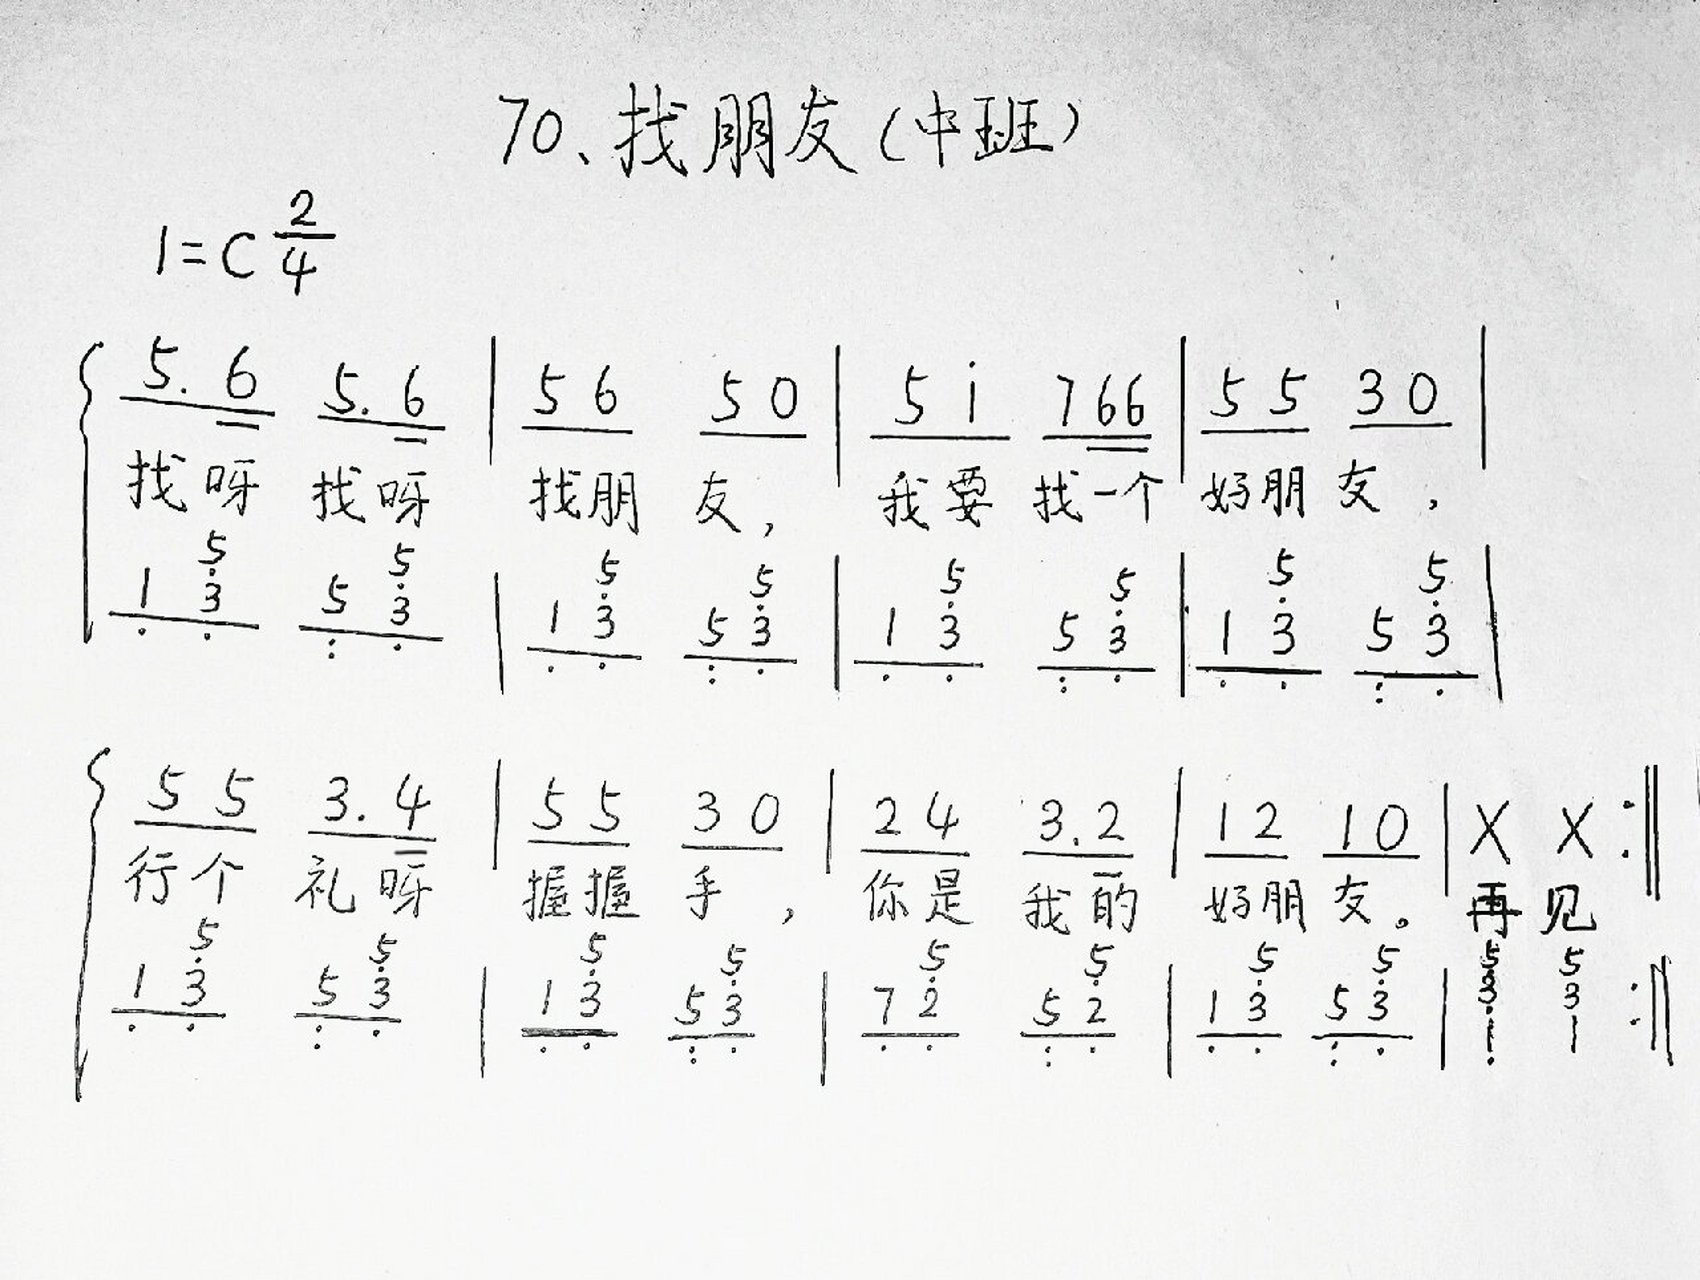 70、找朋友(中班)
1=C 2/4
5. 6 5. 6 | 5 6 5 0 | 5 i 7 6 6 | 5 5 3 0 |
找呀 找呀 找朋 友, 我要 找一个 好朋 友,
5 5 5 5 5 5 5 5
1 3 5 3 | 1 3 5 3 | 1 3 5 3 | 1 3 5 3 |
5 5 3. 4 | 5 5 3 0 | 2 4 3. 2 | 1 2 1 0 | X X :‖
行个 礼呀 握握 手, 你是 我的 好朋 友。 再 见
5 5 5 5 5 5 5 5 5 5
1 3 5 3 | 1 3 5 3 | 7 2 5 2 | 1 3 5 3 | 3 3 :‖
1 1